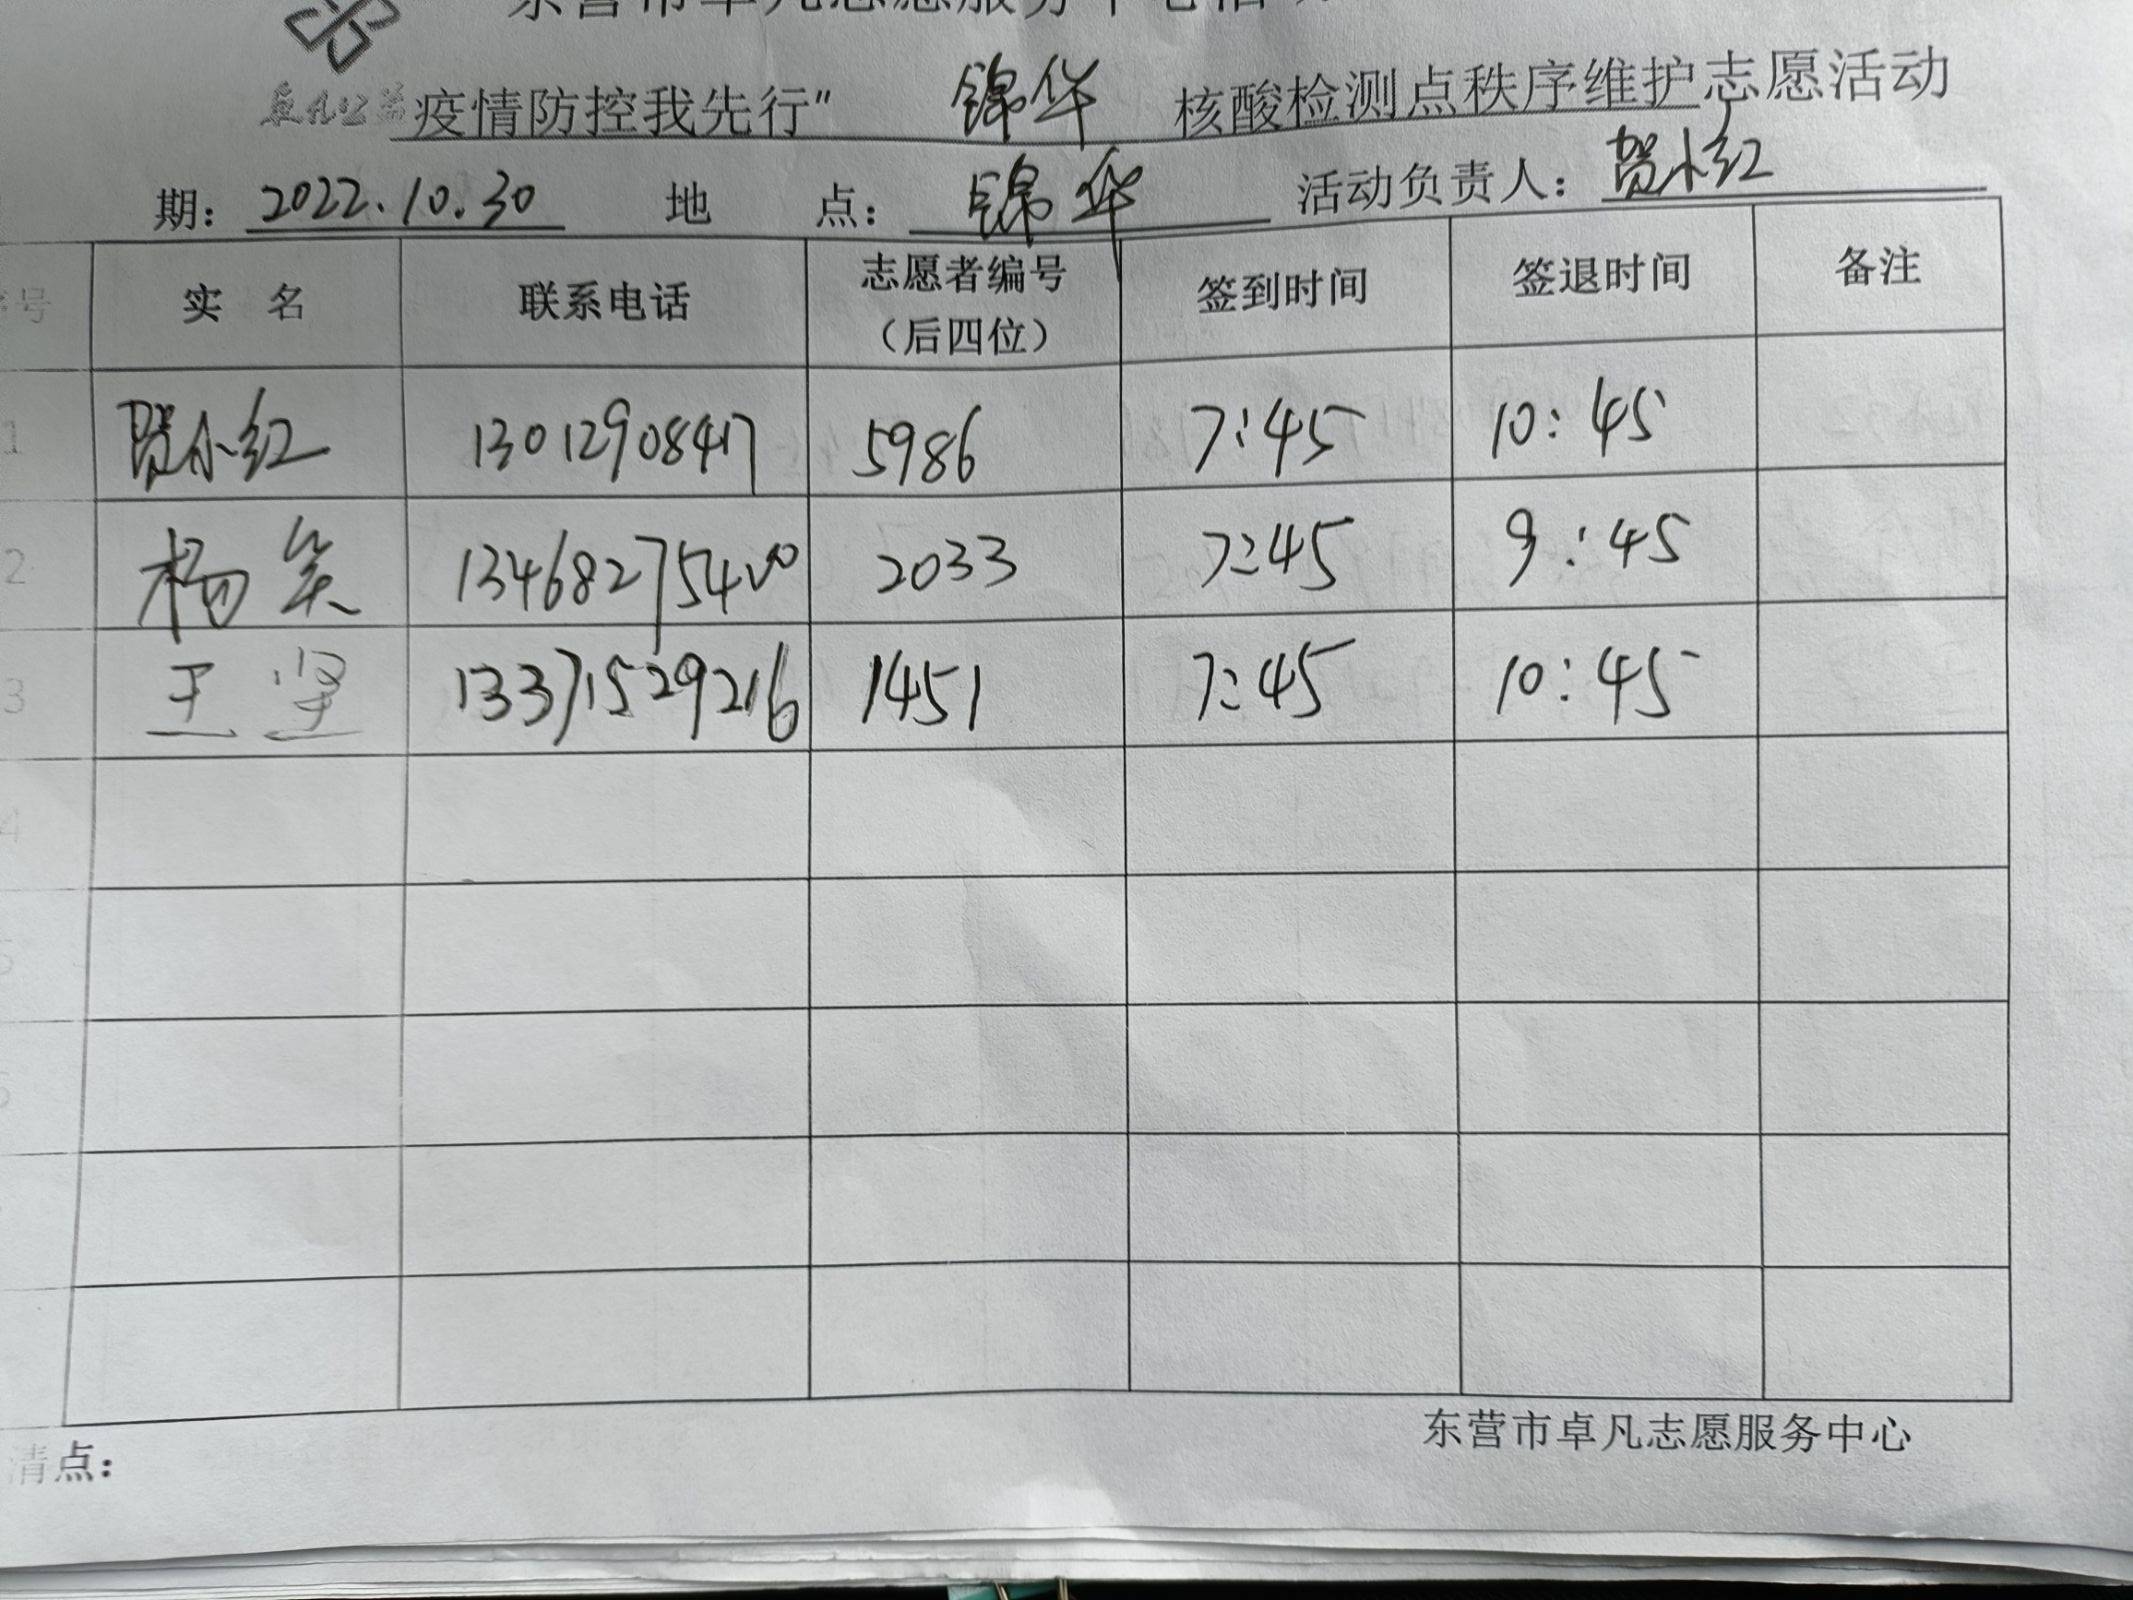 东营市卓凡志愿服务中心活
卓凡公益
疫情防控我先行” 锦华 核酸检测点秩序维护志愿活动
期: 2022.10.30 地 点: 锦华 活动负责人: 贺小红
序号 实 名 联系电话 志愿者编号（后四位） 签到时间 签退时间 备注
1 贺小红 13012908417 5986 7:45 10:45
2 杨笑 13468275400 2033 7:45 9:45
3 王坚 13371529216 1451 7:45 10:45
4
5
6
清点:
东营市卓凡志愿服务中心